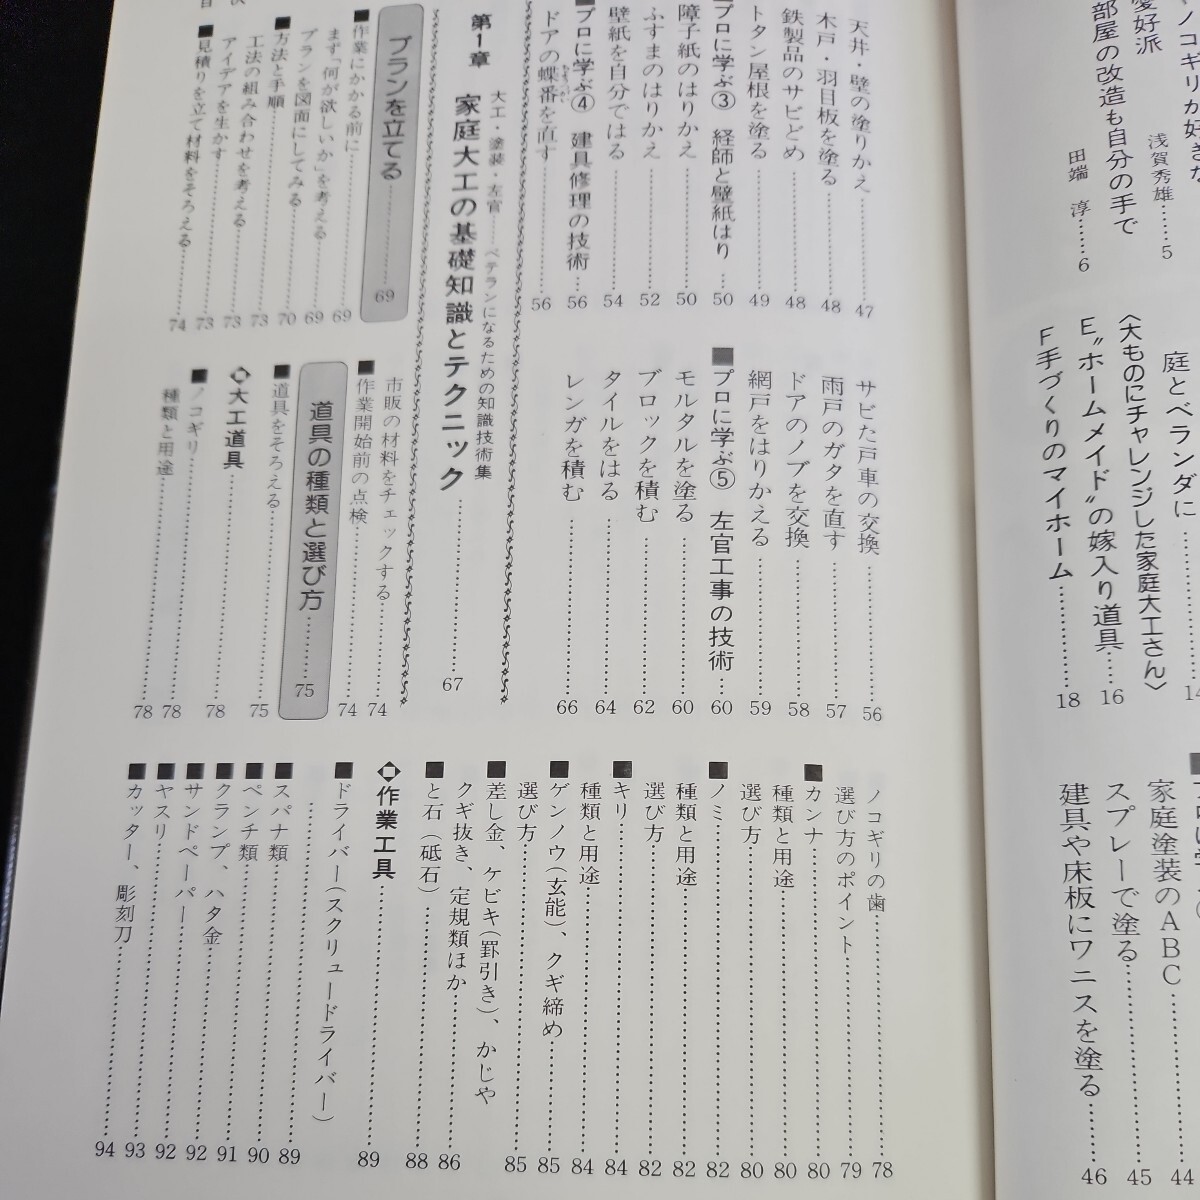 愛好派
浅賀秀雄……5
部屋の改造も自分の手で
田端 淳……6
庭とベランダに
〈大ものにチャレンジした家庭大工さん〉
E〝ホームメイド〟の嫁入り道具……16
F手づくりのマイホーム……18
家庭塗装のABC……44
スプレーで塗る……45
建具や床板にワニスを塗る……46
天井・壁の塗りかえ……47
木戸・羽目板を塗る……48
鉄製品のサビどめ……48
トタン屋根を塗る……49
■プロに学ぶ③ 経師と壁紙はり……50
障子紙のはりかえ……50
ふすまのはりかえ……52
壁紙を自分ではる……54
■プロに学ぶ④ 建具修理の技術……56
ドアの蝶番を直す……56
サビた戸車の交換……56
雨戸のガタを直す……57
ドアのノブを交換……58
網戸をはりかえる……59
■プロに学ぶ⑤ 左官工事の技術……60
モルタルを塗る……60
ブロックを積む……62
タイルをはる……64
レンガを積む……66
大工・塗装・左官……ベテランになるための知識技術集
第1章 家庭大工の基礎知識とテクニック……67
プランを立てる……69
■作業にかかる前に……69
まず「何が欲しいか」を考える……69
プランを図面にしてみる……70
■方法と手順……73
工法の組み合わせを考える……73
アイデアを生かす……73
■見積りを立て材料をそろえる……74
市販の材料をチェックする……74
■作業開始前の点検……74
道具の種類と選び方……75
■道具をそろえる……75
◇大工道具……78
■ノコギリ……78
種類と用途……78
ノコギリの歯……78
選び方のポイント……79
■カンナ……80
種類と用途……80
選び方……80
■ノミ……82
種類と用途……82
選び方……82
■キリ……84
種類と用途……84
■ゲンノウ(玄能)、クギ締め……85
選び方……85
■差し金、ケビキ(罫引き)、かじや
クギ抜き、定規類ほか……86
■と石(砥石)……88
◇作業工具……89
■ドライバー(スクリュードライバー)
……89
■スパナ類……89
■ペンチ類……90
■クランプ、ハタ金……91
■サンドペーパー……92
■ヤスリ……92
■カッター、彫刻刀……93
94